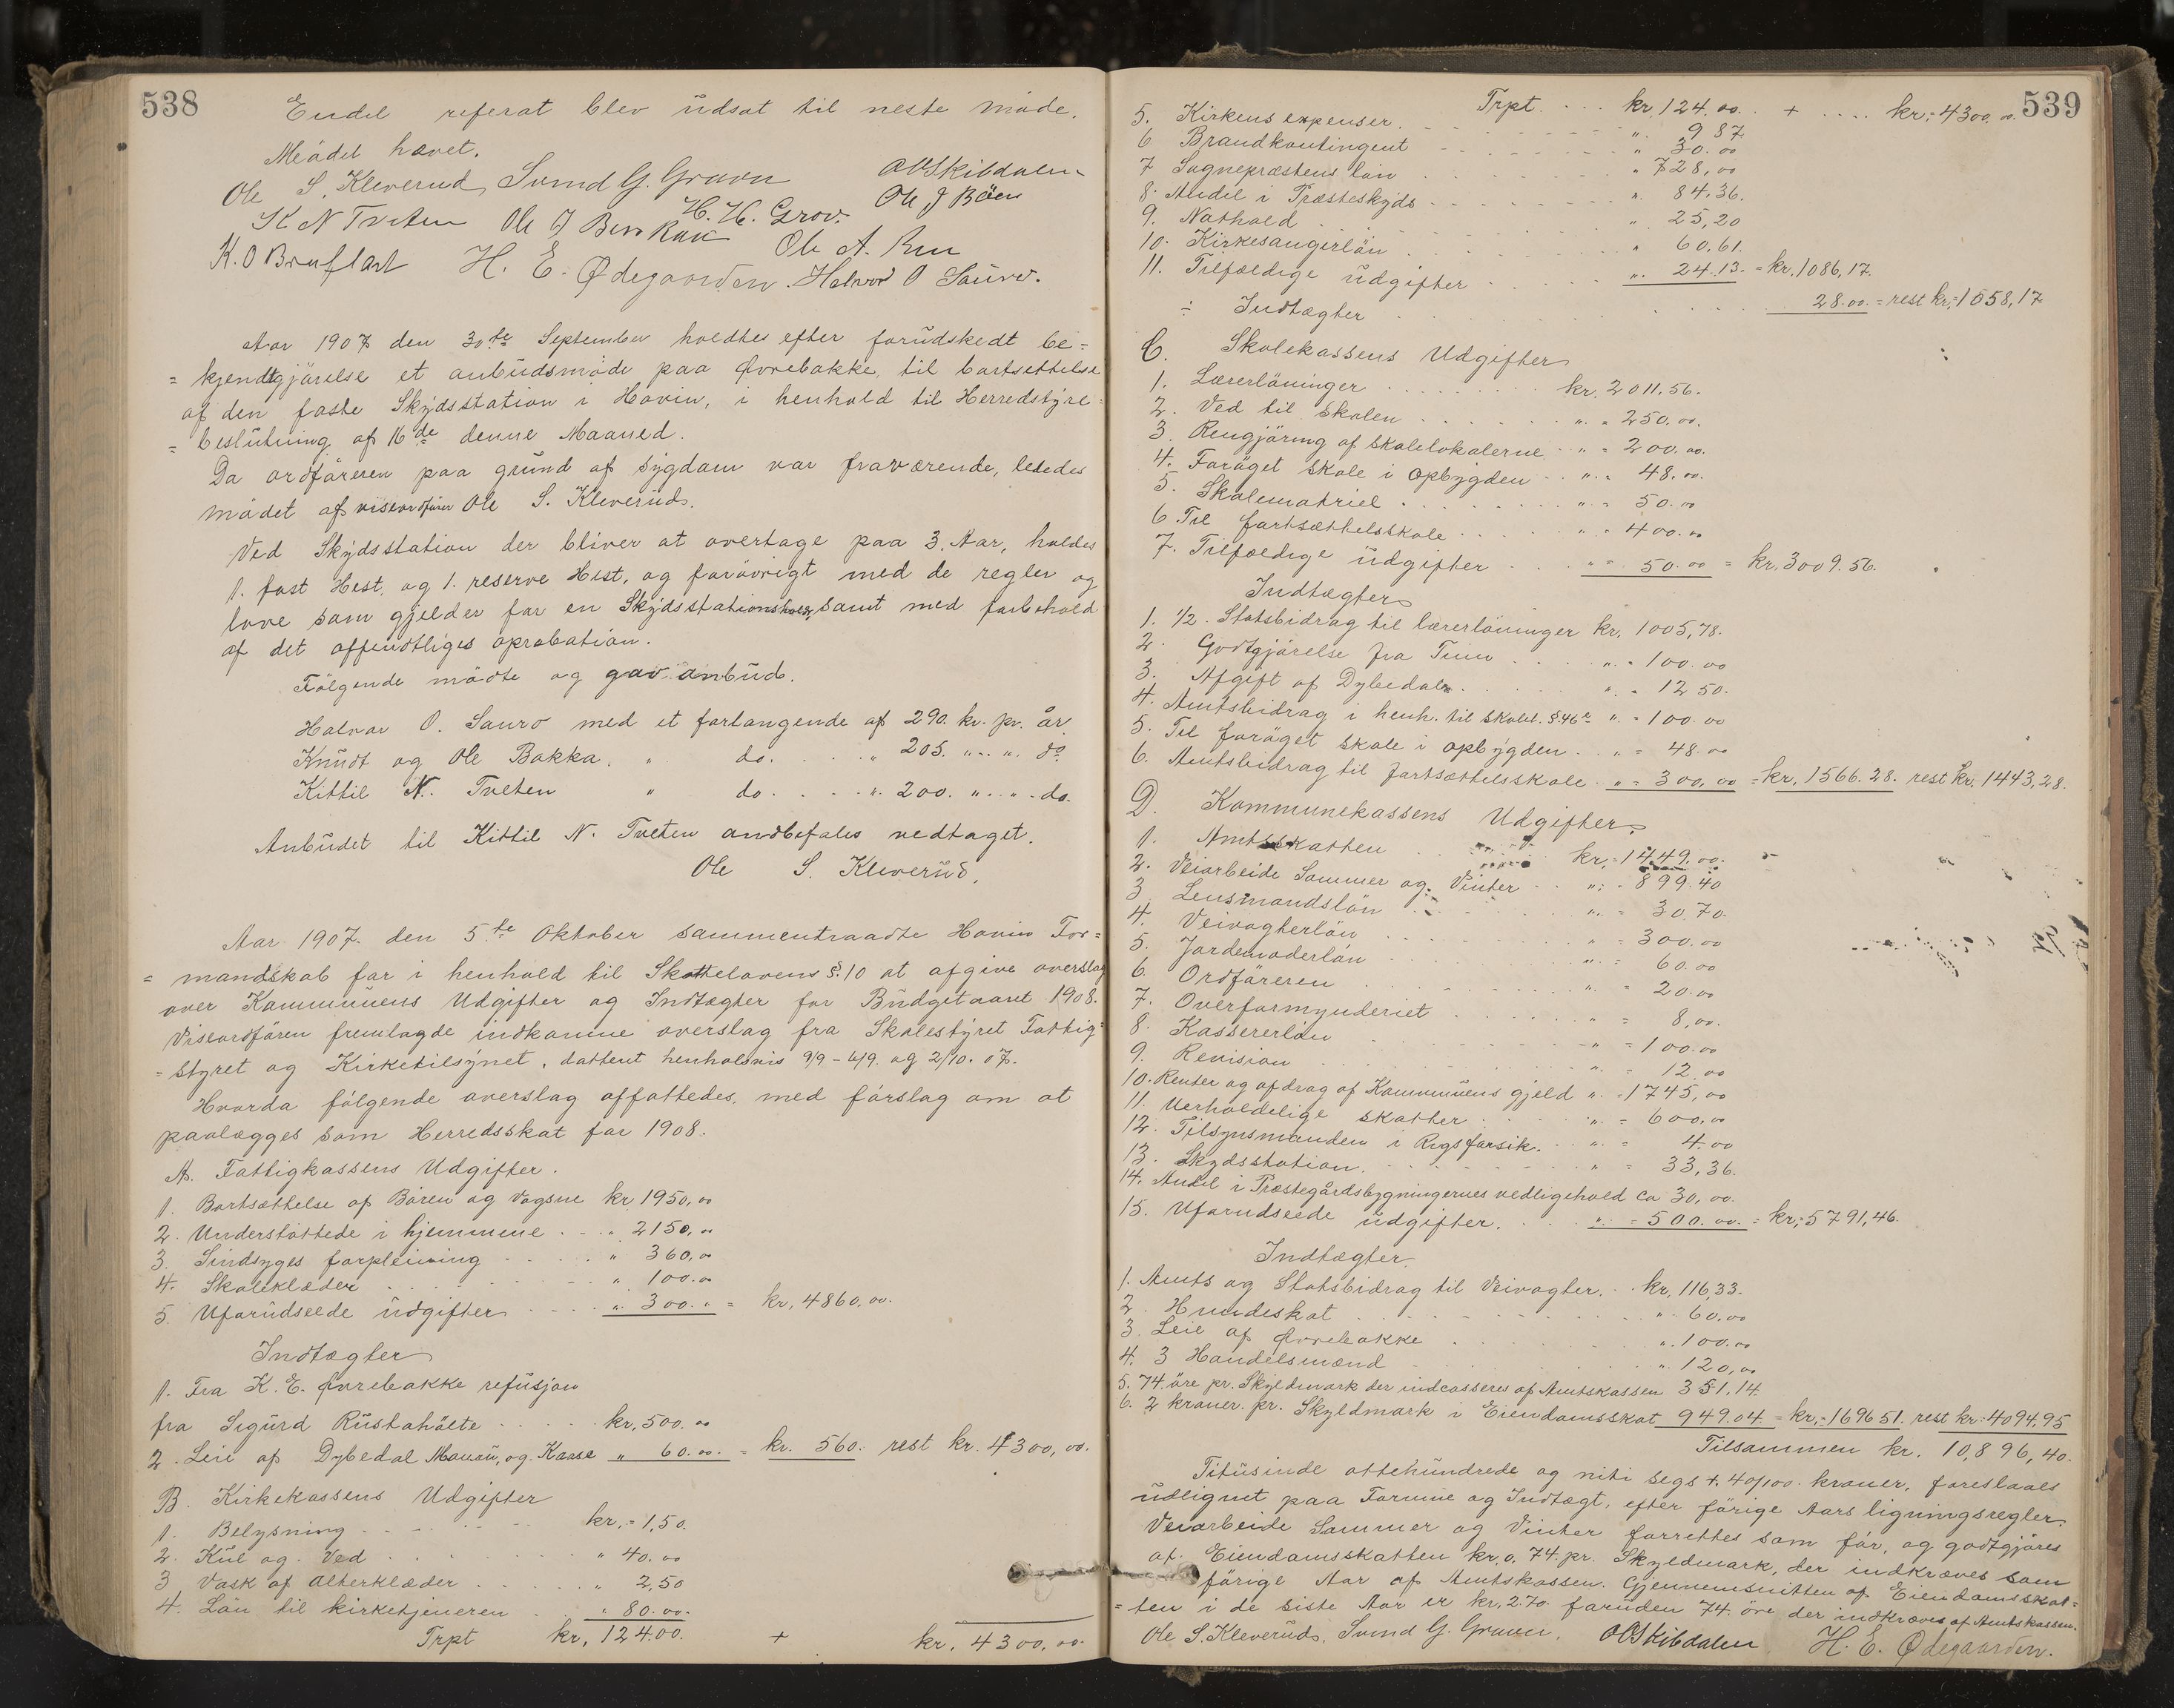 538
Endel referat blev udsat til neste møde.
Mødet hævet.
Ole S. Kleverud, Svend G. Graven OOSkibdalen
K N Tveten Ole J Berskaas H. H. Grov. Ole J Bøen
K. O Bruflat H. E. Ødegaarden. Ole A. Run Halvor O Sauro.
Aar 1907 den 30te September holdtes efter forudskedt be=
= kjendtgjørelse et anbudsmøde paa Øvrebakke, til bortsettelse
af den faste Skydsstation i Hovin, i henhold til Herredstyre=
= beslutning af 16de denne Maaned.
Da ordføreren paa grund af sygdom var fraværende, lededes
mødet af viseordfører Ole S. Kleverud.
Ved Skydsstation der bliver at overtage paa 3. Aar, holdes
1. fast Hest, og 1. reserve Hest, og forøvrigt med de regler og
love som gjelder for en Skydsstationsholder, samt med forbehold
af det offendtliges aprobation.
Følgende mødte og gav anbud.
Halvor O. Sauro med et forlangende af 290. kr. pr. år.
Knudt og Ole Bakka. " do. " 205. " " do
Kittil N. Tveten " do " 200. " " do.
Anbudet til Kittil N. Tveten andbefales vedtaget.
Ole S. Kleverud.
Aar 1907. den 5te Oktober sammentraadte Hovin For=
= mandskab for i henhold til Skattelovens §. 10 at afgive overslag
over Kommunens Udgifter og Indtægter for Budgetaaret 1908.
Viseordføren fremlagde indkomne overslag fra Skolestyret Fattig=
= styret og Kirketilsynet, dattert henholsvis 9/9 - 4/9. og 2/10. 07.
Hvorda følgende overslag affattedes, med forslag om at
paalægges som Herredsskat for 1908.
A. Fattigkassens Udgifter.
1. Bortsættelse af Børen og Vogsne kr. 1950,00
2. Understøttede i hjemmene " 2150,00
3. Sindsyges forpleining " 360,00
4. Skoleklæder " 100.00
5. Uforudseede udgifter " 300. " = kr. 4860,00.
Indtægter
1. Fra K. E. Øvrebakke refusjon
fra Sigurd Rustahølte kr. 500.00
2. Leie af Dybedal Moaen, og Kaase " 60.00. = kr. 560. rest kr. 4300,00.
B. Kirkekassens Udgifter
1. Belysning kr. = 1,50.
2. Kul og Ved " 40.00
3 Vask af Alterklæder " 2,50
4. Løn til kirketjeneren " 80.00.
Trpt kr. 124.00. + kr. 4300,00.
539
Trpt. kr. 124.00. + kr. = 4300.00
5. Kirkens expenser " 9 87
6 Brandkontingent " 30.00
7 Sognepræstens løn " 728,00
8. Andel i Præsteskyds " 84.36.
9. Nathold " 25,20
10. Kirkesangerløn " 60,61.
11. Tilfældige udgifter " 24.13. = kr. 1086,17.
÷ Indtægter 28.00. = rest kr. = 1058,17
C. Skolekassens Udgifter
1. Lærerløninger kr. 2011.56.
2. Ved til Skolen " = 250.00.
3. Rengjøring af skolelokalerne " = 200.00.
4. Forøget skole i Opbygden " = 48.00.
5. Skolematriel " = 50.00
6 Til fortsættelsskole " = 400.00
7. Tilfældige udgifter " = 50.00 = kr. 3009.56.
Indtægter
1. 1/2. Statsbidrag til lærerløninger kr. 1005,78.
2. Godtgjørelse fra Tinn " = 100.00
3. Afgift af Dybedalen " = 12 50.
4. Amtsbidrag i henh. til skolel. §. 46e " = 100.00
5. Til forøget skole i opbygden " = 48.00
6. Amtsbidrag til fortsættelsskole " = 300,00 = kr. 1566.28. rest kr. 1443,28.
D. Kommunekassens Udgifter.
1. Amtsskatten kr. = 1449.00.
2. Veiarbeide Sommer og Vinter " = 899.40
3 Lensmandsløn " = 30.70.
4. Veivogterløn " = 300.00
5. Jordemoderløn " = 60.00
6. Ordføreren " = 20.00
7. Overformynderiet " = 8,00.
8. Kassererløn " = 100.00
9. Revision " 12.00
10. Renter og afdrag af Kommunens gjeld " = 1745,00
11. Uerholdelige skatter " = 600.00
12. Tilsynsmanden i Rigsforsik. " = 4.00
13. Skydsstation. " = 33,36.
14. Andel i Præstegårdsbygningernes vedligehold ca 30,00.
15. Uforudseede udgifter. " = 500.00. = kr. = 5791,46.
Indtægter.
1. Amts og Statsbidrag til Veivogter. kr. 116,33.
2. Hundeskat " 60.00
3. Leie af Øvrebakke " 100.00
4. 3 Handelsmænd " 120,00
5. 74. øre pr. Skyldmark der indcasseres af Amtskassen 351.14.
6. 2 kroner pr. Skyldmark i Eiendomsskat 949.04 = kr. = 1696 51. rest kr. = 4094.95
Tilsammen kr. 10,896,40.
Titusinde ottehundrede og niti segs + 40/100 kroner, foreslaaes
udlignet paa Formue og Indtægt, efter forige Aars ligningsregler.
Veiarbeide Sommer og Vinter forrettes som før, og godtgjøres
af Eiendomsskatten kr. 0. 74. pr. Skyldmark, der indkræves som
forige Aar af Amtskassen. Gjennemsnitten af Eiendomsskat=
= ten i de siste Aar er kr. 2.70. foruden 74. øre der indkræves af Amtskassen.
Ole S. Kleveruds. Svend G. Graven. OOSkibdalen H. E. Ødegaarden.